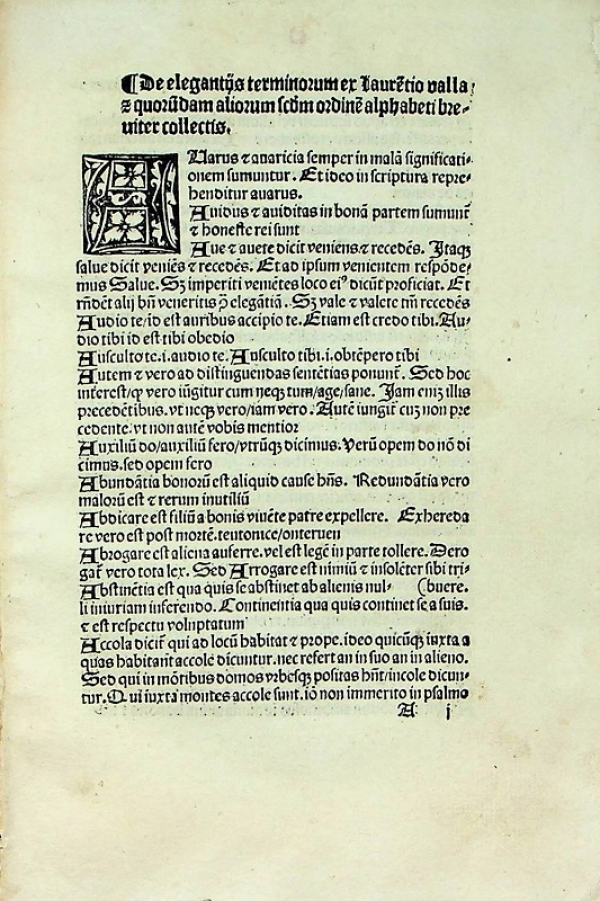 ¶De elegantijs terminorum ex Laurētio valla
⁊ quorūdam aliorum scdm̄ ordinē alphabeti bre-
uiter collectis.
AUarus ⁊ auaricia semper in malā significati-
onem sumuntur. Et ideo in scriptura repre-
henditur auarus.
Auidus ⁊ auiditas in bonā partem sumunt̄
⁊ honeste rei sunt
Aue ⁊ auete dicit veniens ⁊ recedēs. Itaqꝫ
salue dicit veniēs ⁊ recedēs. Et ad ipsum venientem respōde-
mus Salue. Sꝫ imperiti veniētes loco eiꝰ dicūt proficiat. Et
rn̄dēt alij bn̄ veneritis ꝑ elegātiā. Sꝫ vale ⁊ valete tm̄ recedēs
Audio te/id est auribus accipio te. Etiam est credo tibi. Au-
dio tibi id est tibi obedio
Ausculto te.i.audio te. Ausculto tibi.i.obtēpero tibi
Autem ⁊ vero ad distinguendas sentētias ponunt̄. Sed hoc
interest/ꝙ vero iūgitur cum neqꝫ tum/age/sane. Iam eniꝫ illis
precedētibus.vt neqꝫ vero/iam vero. Autē iungit̄ cuꝫ non pre
cedente.vt non autē vobis mentior
Auxiliū do/auxiliū fero/vtrūqꝫ dicimus. Verū opem do nō di
cimus.sed opem fero
Abundātia bonorū est aliquid cause hn̄s. Redundātia vero
malorū est ⁊ rerum inutiliū
Abdicare est filiū a bonis viuēte patre expellere. Exhereda
re vero est post mortē.teutonice/onteruen
Abrogare est aliena auferre.vel est legē in parte tollere. Dero
gat̄ vero tota lex. Sed Arrogare est nimiū ⁊ insolēter sibi tri-
Abstinētia est qua quis se abstinet ab alienis nul- (buere.
li iniuriam inferendo. Continentia qua quis continet se a suis.
⁊ est respectu voluptatum
Accola dicit̄ qui ad locū habitat ⁊ prope.ideo quicūqꝫ iuxta a
quas habitant̄ accole dicuntur.nec refert an in suo an in alieno.
Sed qui in mōtibus domos vrbesqꝫ positas hn̄t/incole dicun-
tur. Qui iuxta montes accole sunt.iō non immerito in psalmo
A j